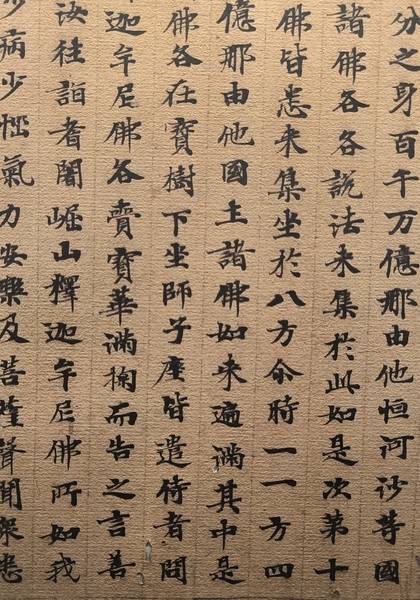 分之身百千万億那由他恒河沙等國
諸佛各各說法来集於此如是次第十
佛皆悉来集坐於八方尒時一一方四
億那由他國土諸佛如来遍滿其中是
佛各在寳樹下坐師子座皆遣侍者問
迦牟尼佛各賷寳華滿掬而告之言善
汝往詣耆闍崛山釋迦牟尼佛所如我
少病少惱氣力安樂及菩薩聲聞衆悉